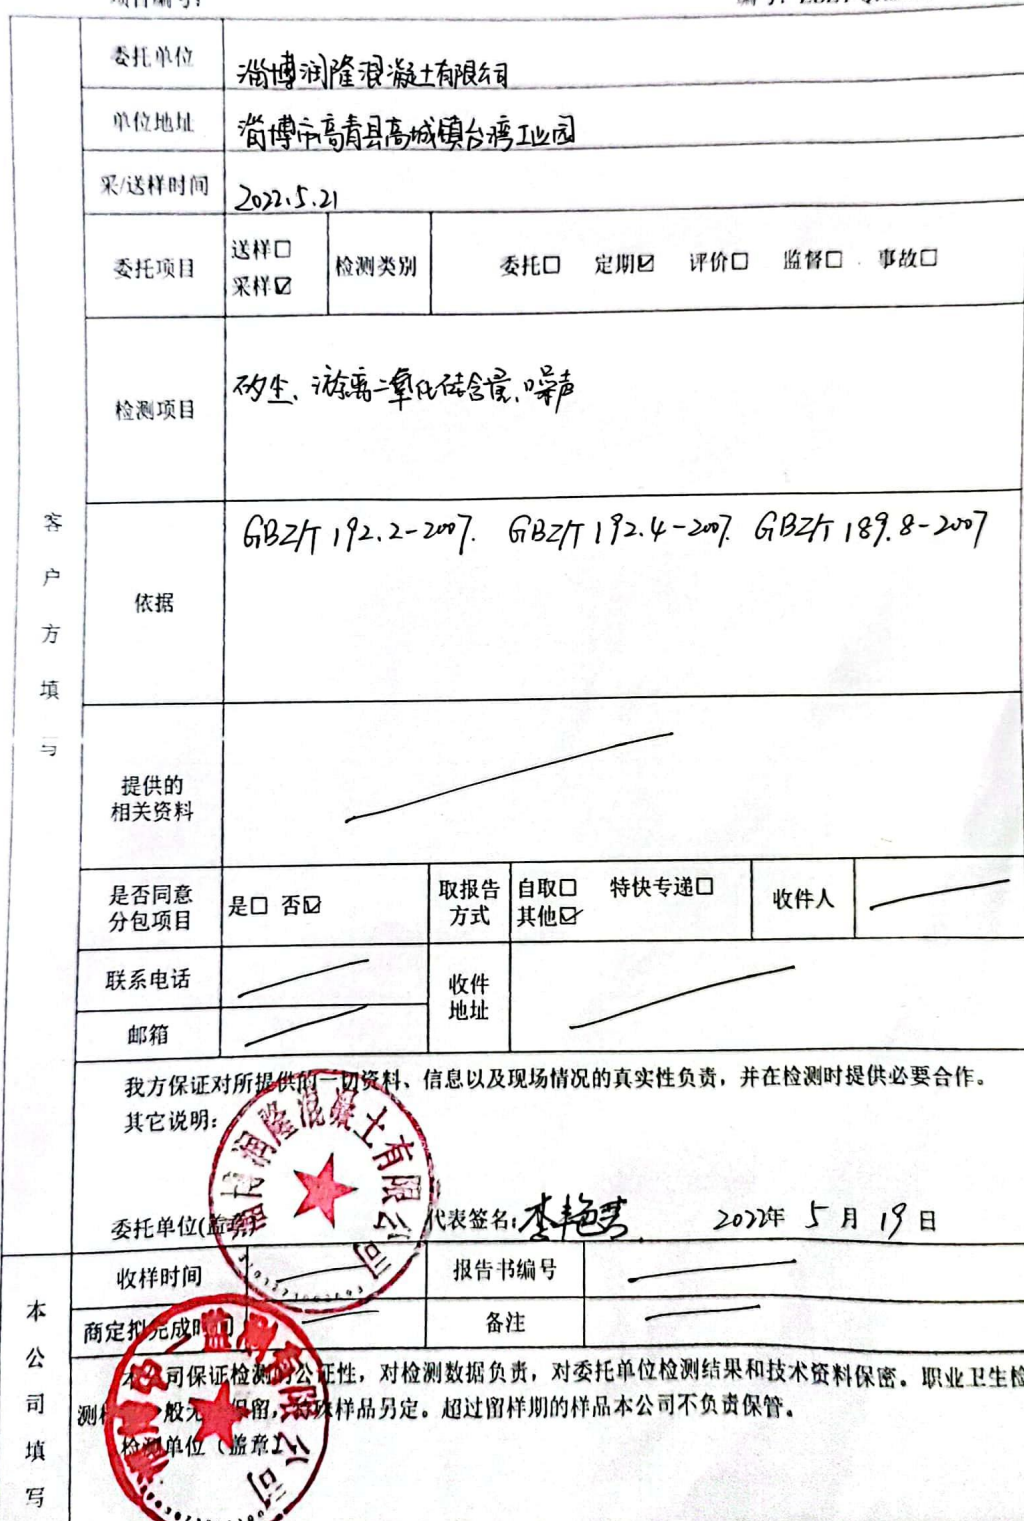 委托单位 淄博润隆混凝土有限公司
单位地址 淄博市高青县高城镇台湾工业园
采/送样时间 2022.5.21
委托项目 送样□ 采样☑ 检测类别 委托□ 定期☑ 评价□ 监督□ 事故□
检测项目 矽尘、游离二氧化硅含量、噪声
客户方填写
依据 GBZ/T 192.2-2007. GBZ/T 192.4-2007. GBZ/T 189.8-2007
提供的
相关资料
是否同意
分包项目 是□ 否☑
取报告
方式 自取□ 特快专递□
其他☑
收件人
联系电话
收件
地址
邮箱
我方保证对所提供的一切资料、信息以及现场情况的真实性负责，并在检测时提供必要合作。
其它说明：
润隆混凝土有限公司
委托单位(盖章) 代表签名： 2022年 5 月 19 日
本公司填写
收样时间 报告书编号
商定拟完成时间 备注
本公司保证检测的公证性，对检测数据负责，对委托单位检测结果和技术资料保密。职业卫生检
测样 般无 保留，特殊样品另定。超过留样期的样品本公司不负责保管。
检测单位（盖章）
监测有限公司